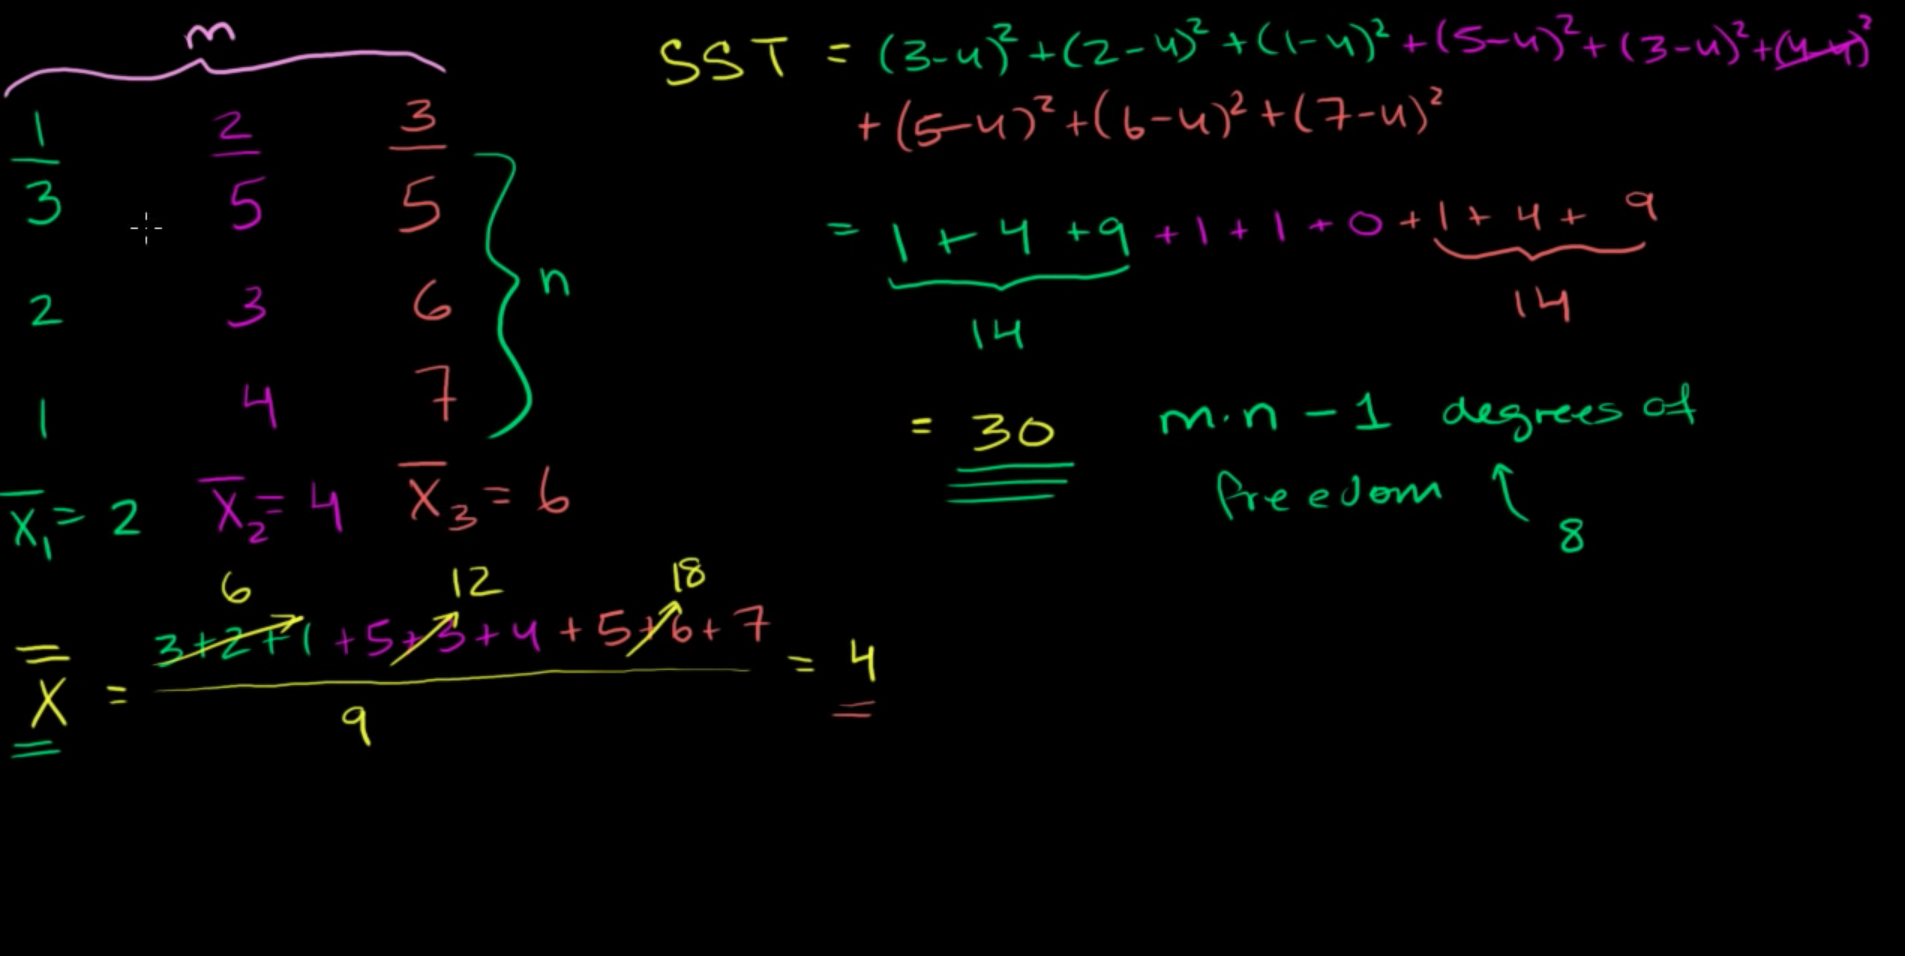 m
1 2 3
3 5 5
2 3 6
1 4 7
n
X̄₁ = 2 X̄₂ = 4 X̄₃ = 6
6 12 18
X̿ = (3+2+1 + 5+3+4 + 5+6+7) / 9 = 4
SST = (3-4)² + (2-4)² + (1-4)² + (5-4)² + (3-4)² + (4-4)²
+ (5-4)² + (6-4)² + (7-4)²
= 1 + 4 + 9 + 1 + 1 + 0 + 1 + 4 + 9
14 14
= 30 m·n - 1 degrees of
freedom 8